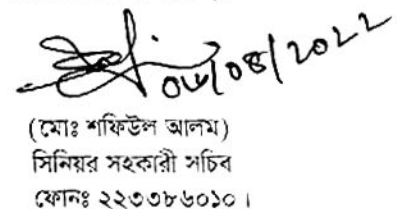 ০৮/০৪/২০২২
(মোঃ শফিউল আলম)
সিনিয়র সহকারী সচিব
ফোনঃ ২২৩৩৮৬০১০।